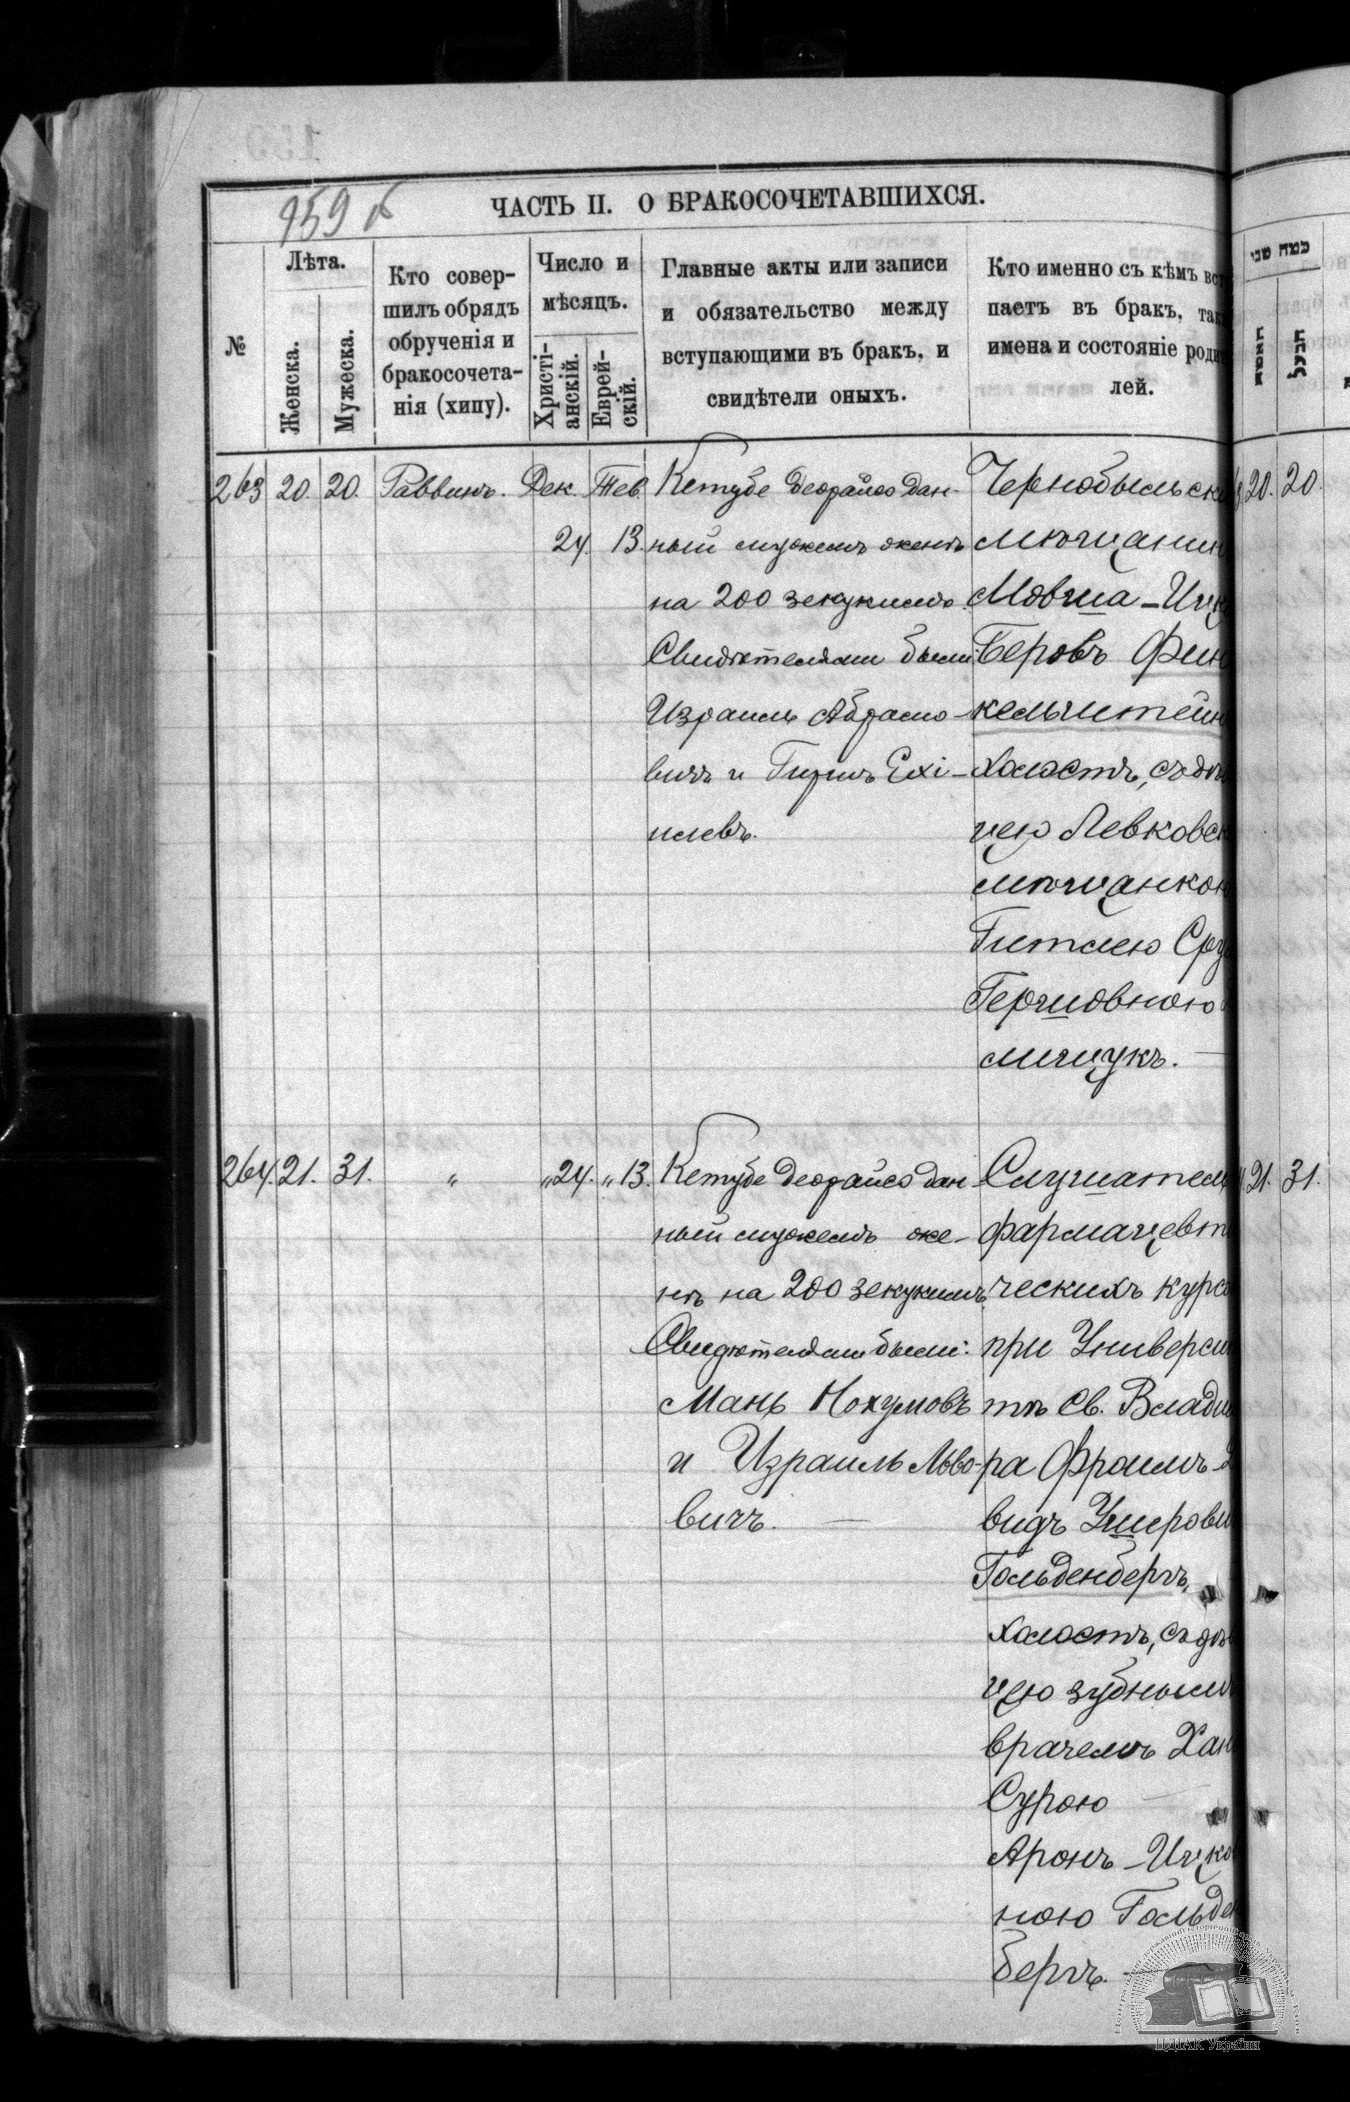 159 об
ЧАСТЬ II. О БРАКОСОЧЕТАВШИХСЯ.
№
Лѣта.
Женска.
Мужеска.
Кто совер-
шилъ обрядъ
обрученія и
бракосочета-
нія (хипу).
Число и
мѣсяцъ.
Христі-
анскій.
Еврей-
скій.
Главные акты или записи
и обязательство между
вступающими въ бракъ, и
свидѣтели оныхъ.
Кто именно съ кѣмъ вст
паетъ въ бракъ, так
имена и состояніе роди
лей.
כמה שני
האשה
הבעל
263 20. 20. Раввинъ. Дек. 24. Тев. 13.
Кетубе деорайсо дан-
ный мужемъ женѣ
на 200 зекукимъ.
Свидѣтелями были:
Израиль Абрамо-
вичъ и Гиршъ Ехі-
илевъ.
Чернобыльскі
мѣщанин
Мовша-Ицк
Беровъ Фин
кельштейн
холостъ, съ дѣ
цею Левковск
мѣщанкою
Гитлею Сру
Гершовною
мищукъ.
20. 20.
264. 21. 31. " " 24. " 13.
Кетубе деорайсо дан-
ный мужемъ же-
нѣ на 200 зекукимъ
Свидѣтелями были:
Мань Нохумовъ
и Израиль Льво-
вичъ.
Слушатель
фармацевти
ческихъ курсо
при Университе
тѣ Св. Владим
ра Фроимъ-Д
видъ Ушерови
Гольденбергъ,
холостъ, съ дѣв
цею зубнымъ
врачемъ Хан
Сурою
Аронъ-Ицков
ною Гольден
бергъ.
21. 31.
ЦДІАК України